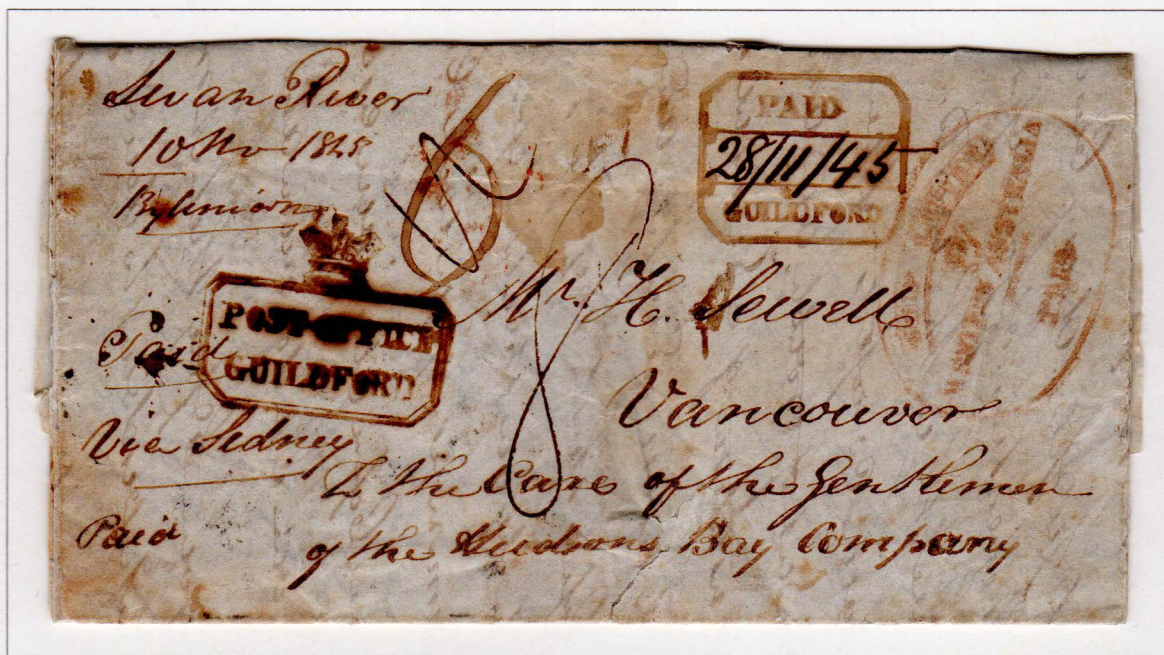 Swan River
10 Nov 1845
By Unicorn
8
PAID
28/11/45
GUILDFORD
WESTERN AUSTRALIA
PAID
POST-OFFICE
GUILDFORD
Mr. H. Sewell
Paid
Vancouver
Via Sedney
To the Care of the Gentlemen
Paid
of the Hudsons Bay Company